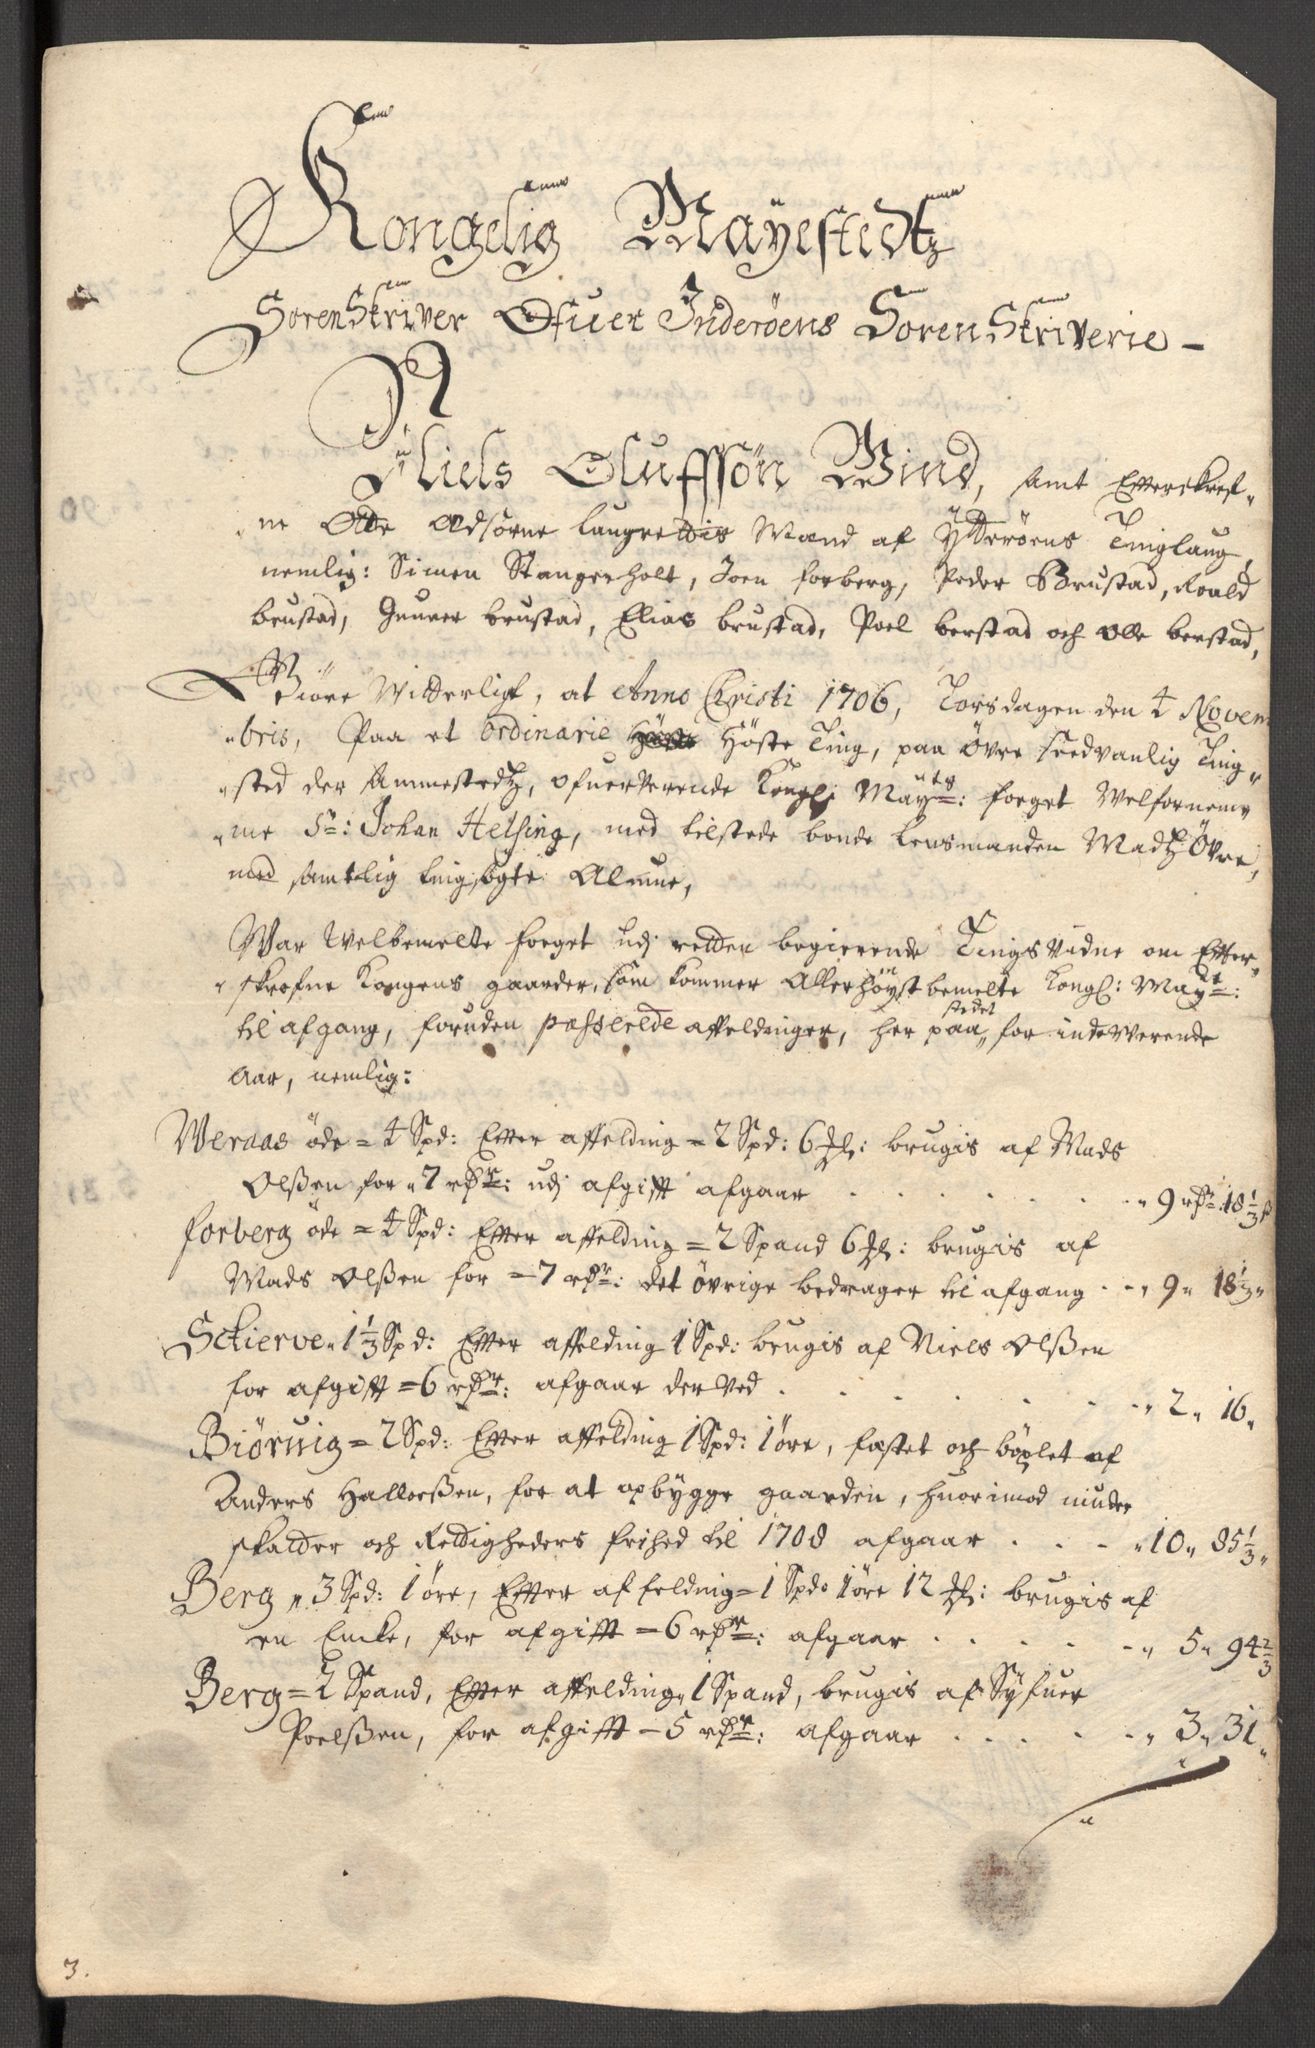 Kongelig Mayestedtz
SorenSkriver Ofuer Inderöens SorenSkriverie –
Niels Oluffsön Wind, samt Efterskref-
ne Otte Edsorne Laugrettis Mænd af Ytterøens Tinglaug,
nemlig: Simen Stangerholt, Joen forberg, Peder Brustad, Roald
brustad, Gunner brustad, Elias brustad, Poel berstad och Olle berstad,
Giöre Witterligt, at Anno Christi 1706, Torsdagen den 4 Novem
bris, Paa et ordinarie Höste Ting, paa Övre seedvanlig Ting-
sted der Ammestedtz, ofuerværende Kongl: Mayts: foeget Welfornem-
me Sr: Johan Helsing, med tilstede bonde Lensmanden Madtz Övre,
med samtlig tingsøgte Almue,
War Welbemelte foeget udj retten begierende TingsVidne om Efter-
skrefne Kongens gaarder, som kommer Allerhöyst bemelte Kongl: Mayt:
til afgang, foruden passerede affeldninger, her paa stedet for indeWerende
Aar, nemlig:
Weraas öde = 4 Spd: Efter affelding = 2 Spd: 6 Ml: brugis af Mads
Olßen for 7 rdr: udj afgifft afgaar . . . . . . 9 rdr: 18⅓ s
forberg öde = 4 Spd: Efter affelding = 2 Spand 6 Ml: brugis af
Mads Olßen for = 7 rdr: det övrige bedrager til afgang . . 9 " 18⅓ "
Schierve " 1⅓ Spd: Efter affelding 1 Spd: brugis af Niels Olßen
for afgifft = 6 rdr: afgaar der Ved . . . . . . " 2 " 16 "
Biörvig = 2 Spd: Efter affelding 1 Spd: 1 öre, fæstet och böxlet af
Anders Halloeßen, for at opbygge gaarden, huorimod niuder
skatter och Rettigheders frihed til 1708 afgaar . . . " 10 " 85⅓ "
Berg " 3 Spd: 1 öre, Efter affelding = 1 Spd: 1 öre 12 Ml: brugis af
en Encke, for afgifft = 6 rdr: afgaar . . . . . " 5 " 94⅔
Berg = 2 Spand, Efter affelding " 1 Spand, brugis af Syfuer
Poelßen, for afgifft = 5 rdr: afgaar . . . . . " 3 " 31 "
3.